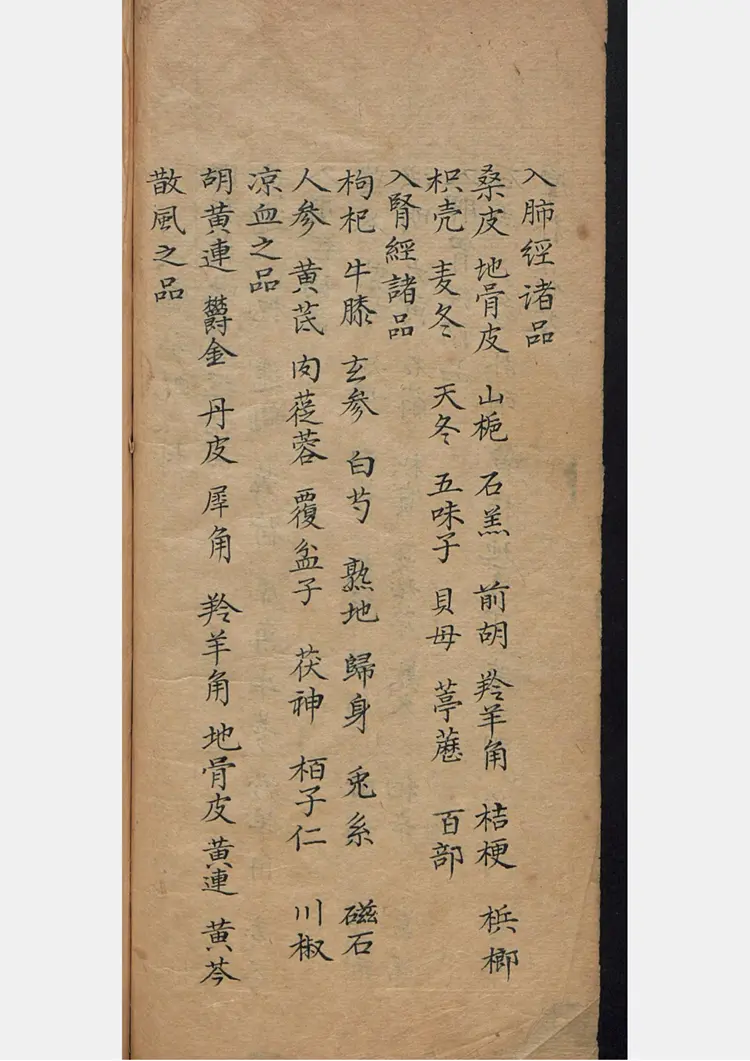 入肺經諸品
桑皮 地骨皮 山栀 石羔 前胡 羚羊角 桔梗 梹榔
枳壳 麦冬 天冬 五味子 貝母 葶藶 百部
入腎經諸品
枸杞 牛膝 玄参 白芍 熟地 歸身 兎糸 磁石
人参 黄芪 肉蓯蓉 覆盆子 茯神 栢子仁 川椒
凉血之品
胡黄連 欝金 丹皮 犀角 羚羊角 地骨皮 黄連 黄芩
散風之品